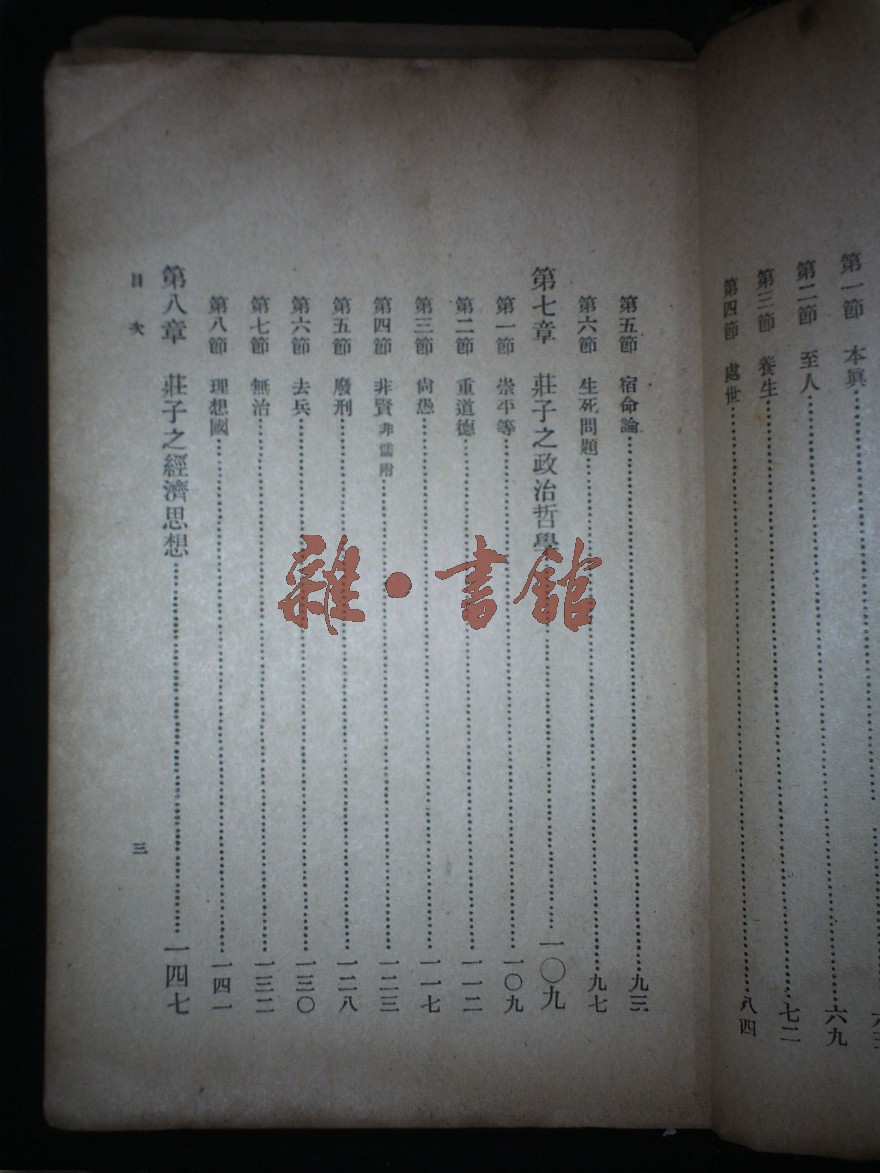 第一節 本眞
第二節 至人 六九
第三節 養生 七二
第四節 處世 八四
第五節 宿命論 九三
第六節 生死問題 九七
第七章 莊子之政治哲學 一〇九
第一節 崇平等 一〇九
第二節 重道德 一一二
第三節 尙愚 一一七
第四節 非賢 非儒附 一二三
第五節 廢刑 一二八
第六節 去兵 一三〇
第七節 無治 一三二
第八節 理想國 一四一
第八章 莊子之經濟思想 一四七
目次 三
雜·書館